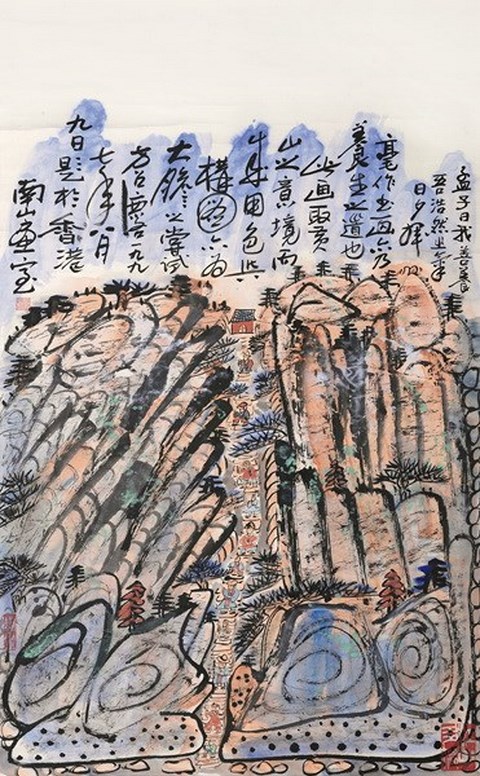 孟子曰我善養
吾浩然之氣
日夕揮
毫作書画亦乃
養生之道也
此画取黃
山之意境而
用色與
構圖亦為
大膽之嘗試
方召麐一九九
七年八月
九日題於香港
南山畫室